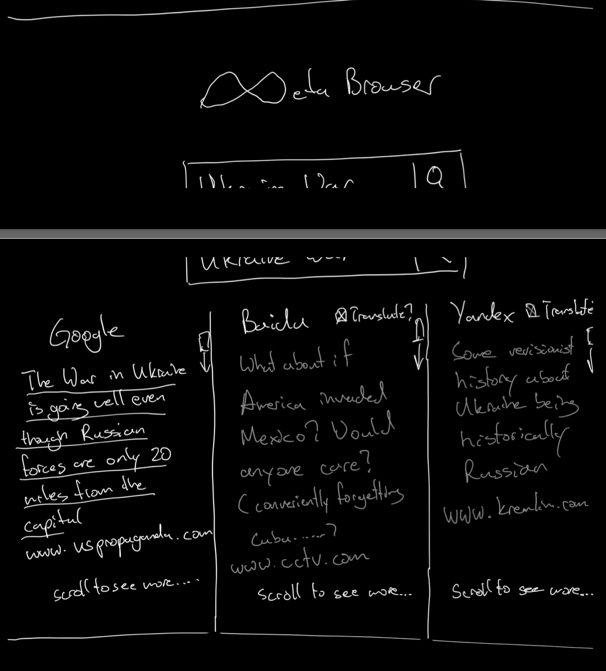 Meta Browser
Ukraine War
Ukraine War
Google
The War in Ukraine
is going well even
though Russian
forces are only 20
miles from the
capital
www.uspropaganda.com
scroll to see more....
Baidu
Translate?
What about if
America invaded
Mexico? Would
anyone care?
(conveniently forgetting
Cuba.....?
www.cctv.com
scroll to see more...
Yandex
Translate
Some revisionist
history about
Ukraine being
historically
Russian
www.kremlin.com
Scroll to see more...